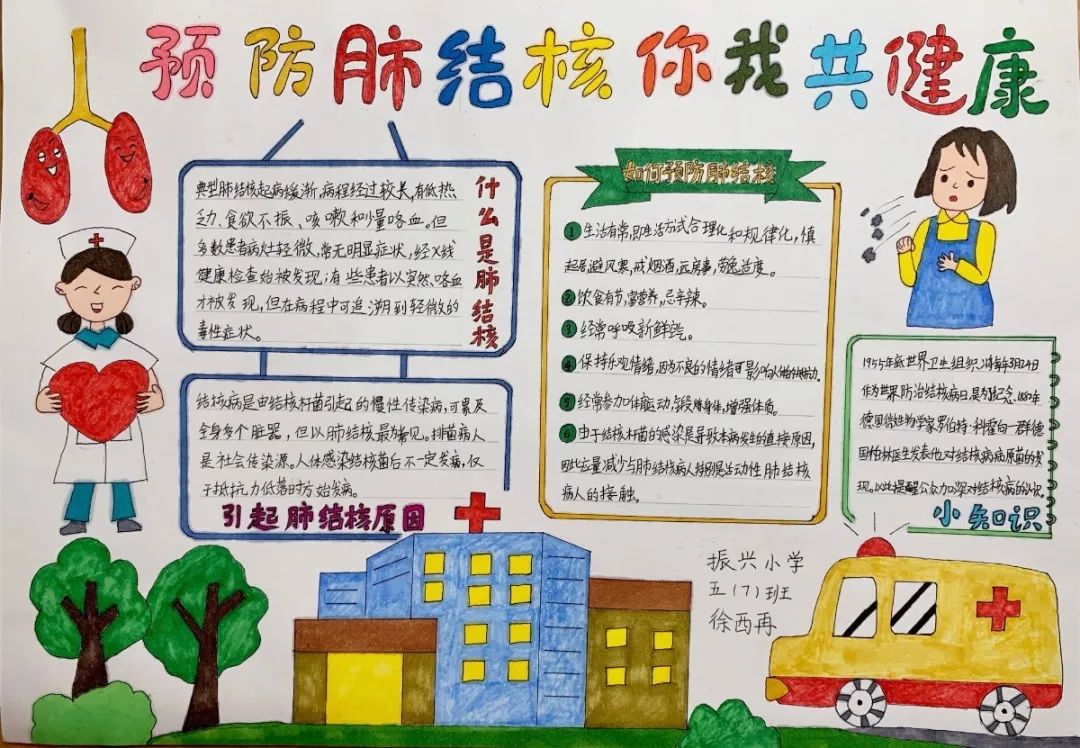 预防肺结核你我共健康
什么是肺结核
典型肺结核起病缓渐,病程经过较长,有低热
乏力、食欲不振、咳嗽和少量咯血。但
多数患者病灶轻微,常无明显症状,经X线
健康检查始被发现;有些患者以突然咯血
才被发现,但在病程中可追溯到轻微的
毒性症状。
结核病是由结核杆菌引起的慢性传染病,可累及
全身多个脏器,但以肺结核最为常见。排菌病人
是社会传染源。人体感染结核菌后不一定发病,仅
于抵抗力低落时方始发病。
引起肺结核原因
如何预防肺结核
1 生活有常,即生活方式合理化和规律化,慎
起居避风寒,戒烟酒,远房事,劳逸适度。
2 饮食有节,富营养,忌辛辣。
3 经常呼吸新鲜空气。
4 保持乐观情绪,因为不良的情绪可影响
5 经常参加体育运动与锻炼身体,增强体质。
6 由于结核杆菌的感染是导致本病发生的直接原因,
因此应量减少与肺结核病人特别是活动性肺结核
病人的接触。
1955年底世界卫生组织将每年3月24日
作为世界防治结核病日,是为纪念1882年
德国微生物学家罗伯特·科霍向一群德
国柏林医生发表他对结核病病原菌的发
现。以此提醒公众加深对结核病的认识。
小知识
振兴小学
五(7)班
徐西再